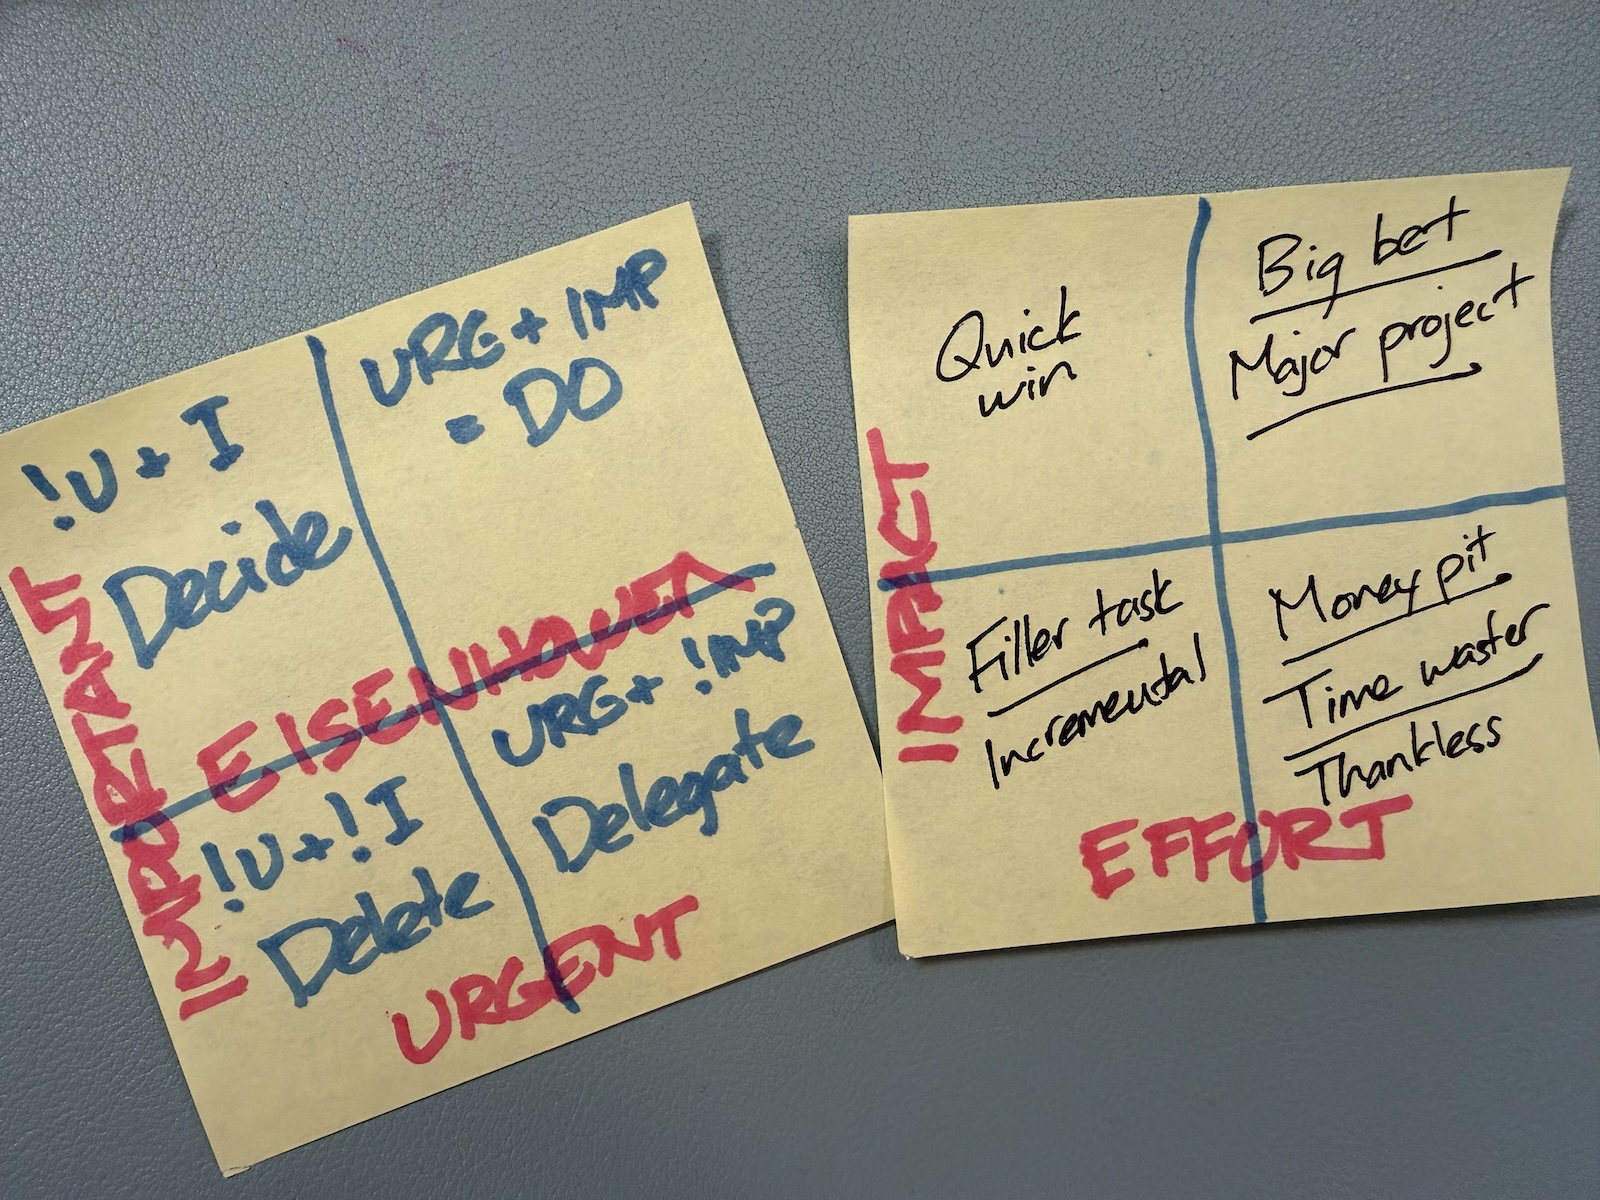 !U + I
Decide
URG + IMP
= DO
IMPORTANT
EISENHOWER
!U + !I
Delete
URG + !IMP
Delegate
URGENT
Quick
win
Big bet
Major project
IMPACT
Filler task
Incremental
Money pit
Time waster
Thankless
EFFORT